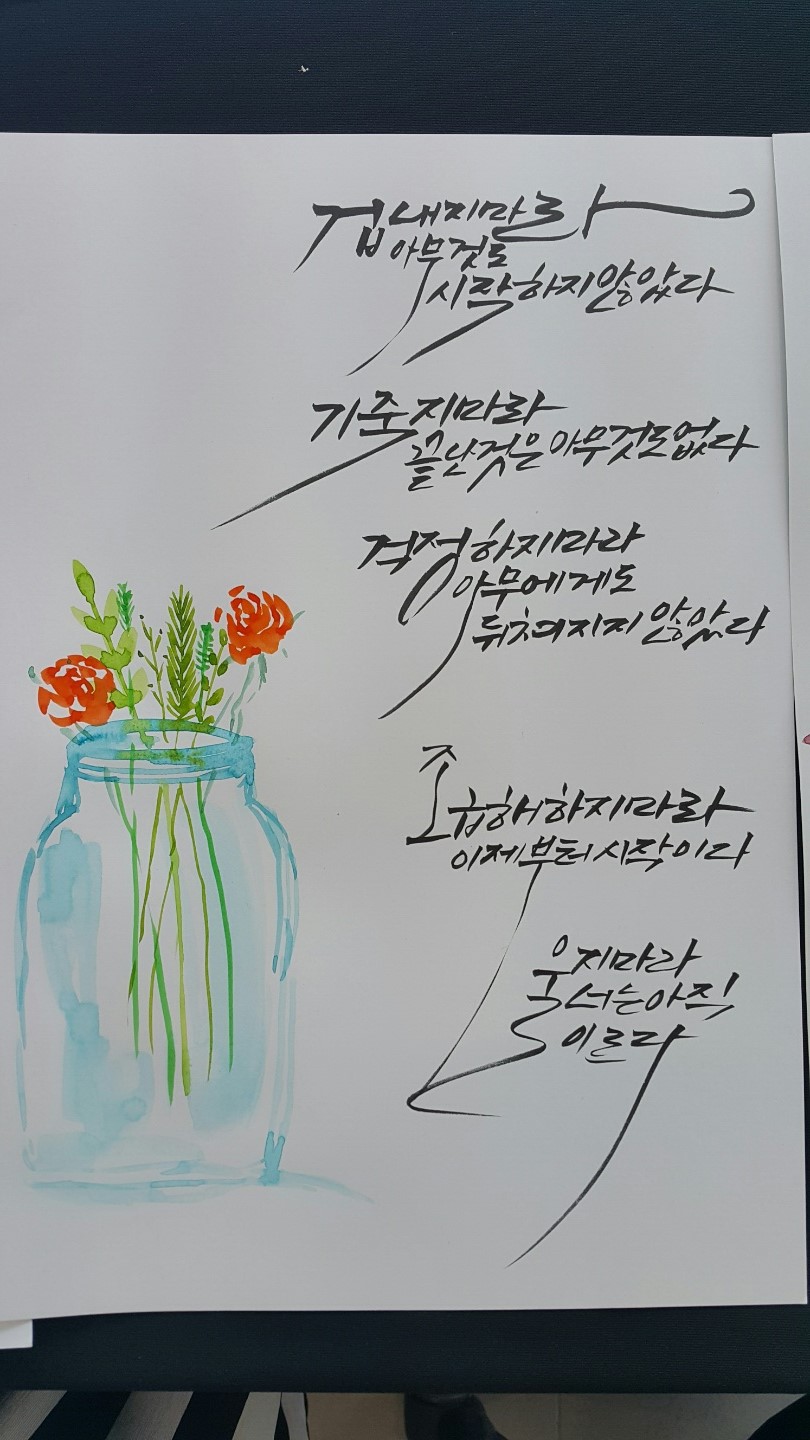 겁내지마라
아무것도
시작하지않았다
기죽지마라
끝난것은아무것도없다
걱정하지마라
아무에게도
뒤쳐지지않았다
조급해하지마라
이제부터시작이다
울지마라
서는아직
이르다